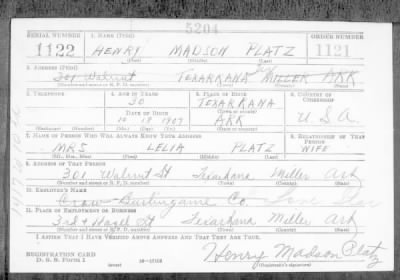 5204
SERIAL NUMBER 1. NAME (Print) ORDER NUMBER
1122 HENRY MADSON PLATZ 1121
(First) (Middle) (Last)
2. ADDRESS (Print)
301 Walnut TEXARKANA MILLER ARK
(Number and street or R. F. D. number) (Town) (County) (State)
3. TELEPHONE 4. AGE IN YEARS 5. PLACE OF BIRTH 6. COUNTRY OF CITIZENSHIP
30 TEXARKANA
(Town or county)
DATE OF BIRTH
10 18 1909 ARK U.S.A.
(Exchange) (No.) (Mo.) (Day) (Yr.) (State or country)
7. NAME OF PERSON WHO WILL ALWAYS KNOW YOUR ADDRESS 8. RELATIONSHIP OF THAT PERSON
MRS LELIA PLATZ WIFE
(Mr., Mrs., Miss) (First) (Middle) (Last)
9. ADDRESS OF THAT PERSON
301 Walnut St Texarkana Miller Ark
(Number and street or R. F. D. number) (Town) (County) (State)
10. EMPLOYER'S NAME
Crow-Burlingame Co.
11. PLACE OF EMPLOYMENT OR BUSINESS
3rd & Hazel St Texarkana Miller Ark
(Number and street or R. F. D. number) (Town) (County) (State)
I AFFIRM THAT I HAVE VERIFIED ABOVE ANSWERS AND THAT THEY ARE TRUE.
REGISTRATION CARD
D. S. S. Form 1 (over) Henry Madson Platz
(Registrant's signature)